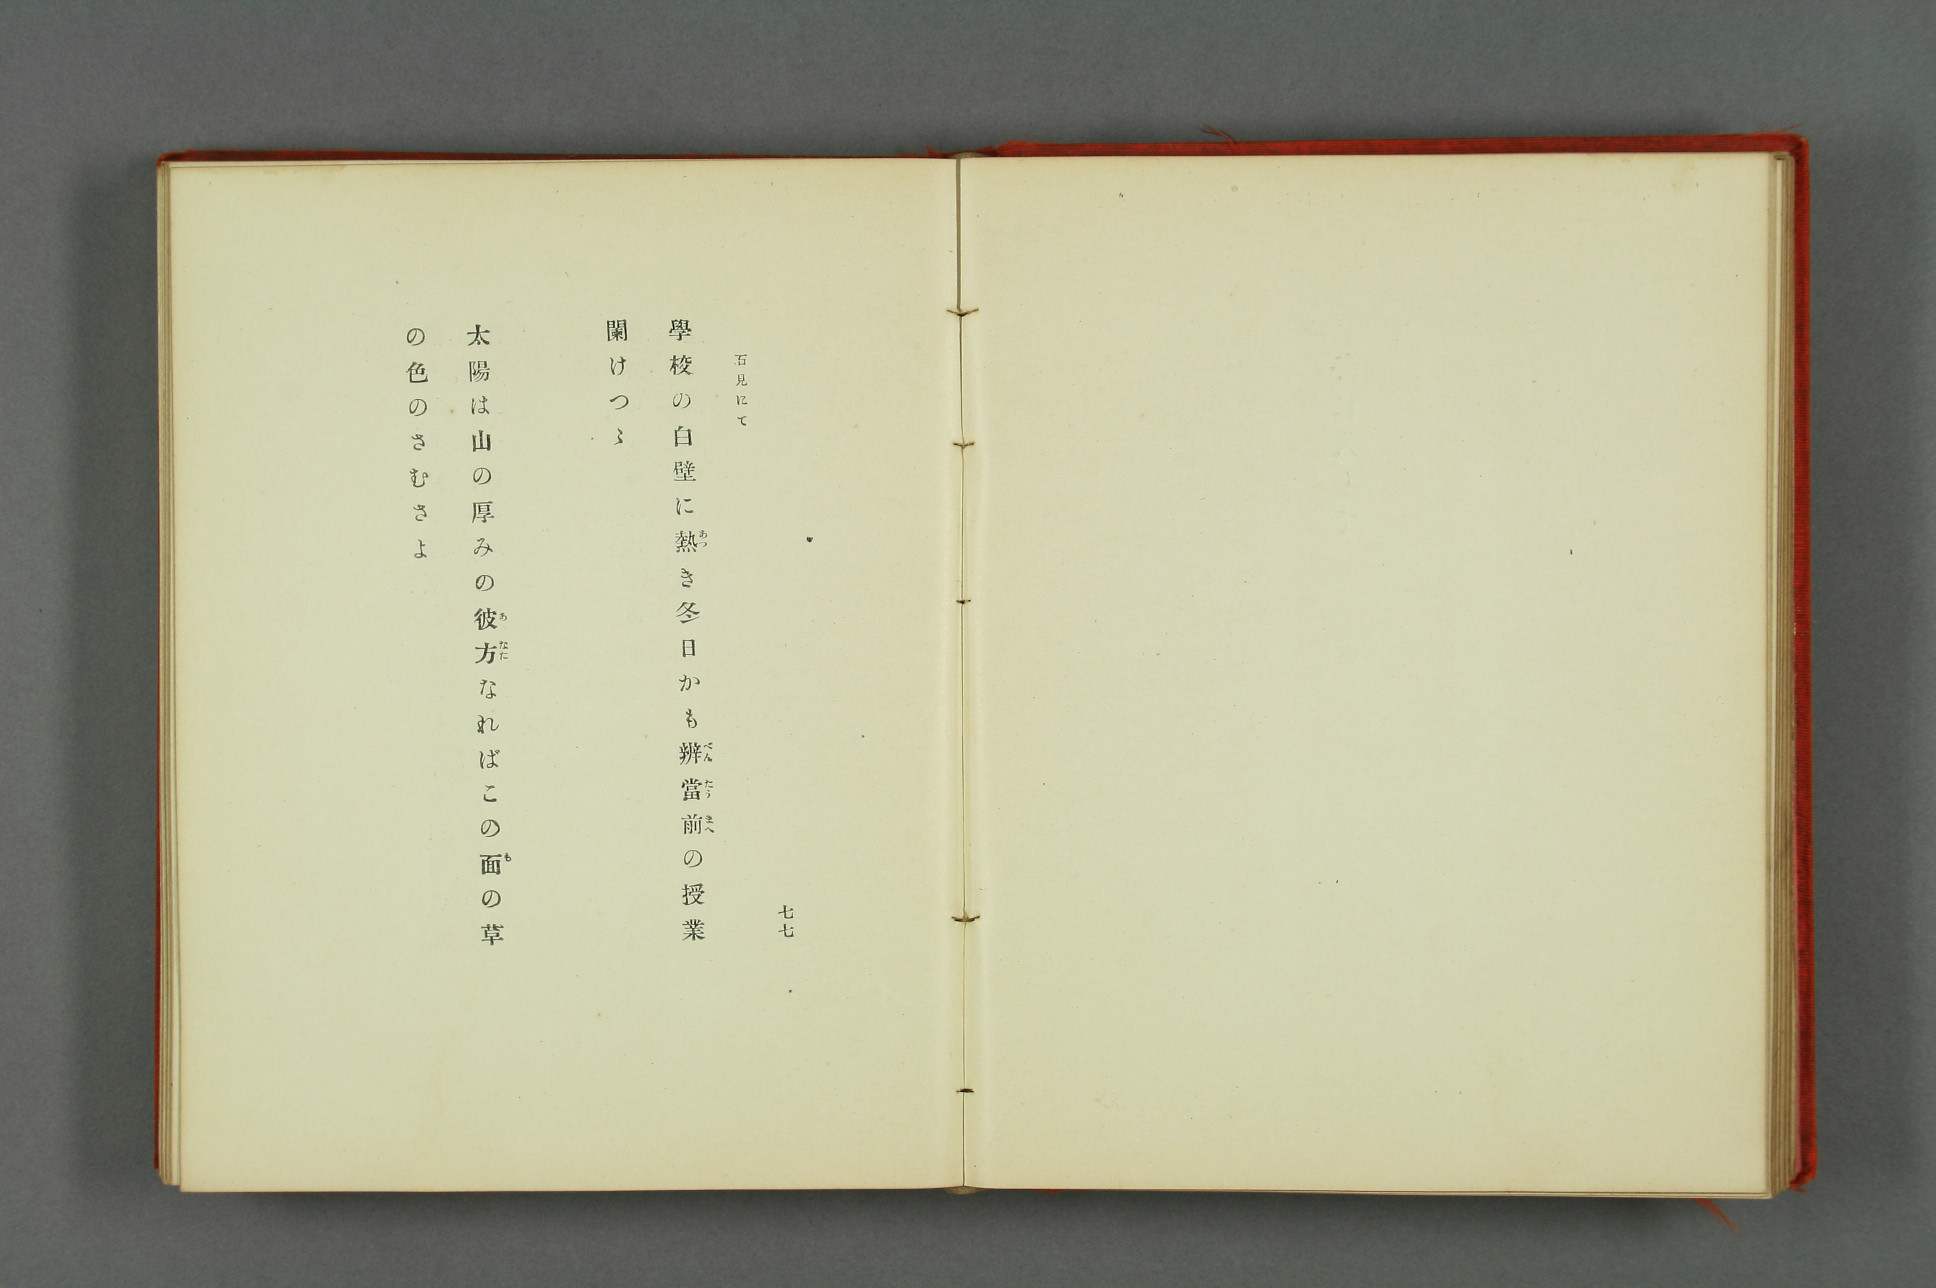 七七
石見にて
學校の白壁に熱き冬日かも辨當前の授業
闌けつゝ
太陽は山の厚みの彼方なればこの面の草
の色のさむさよ